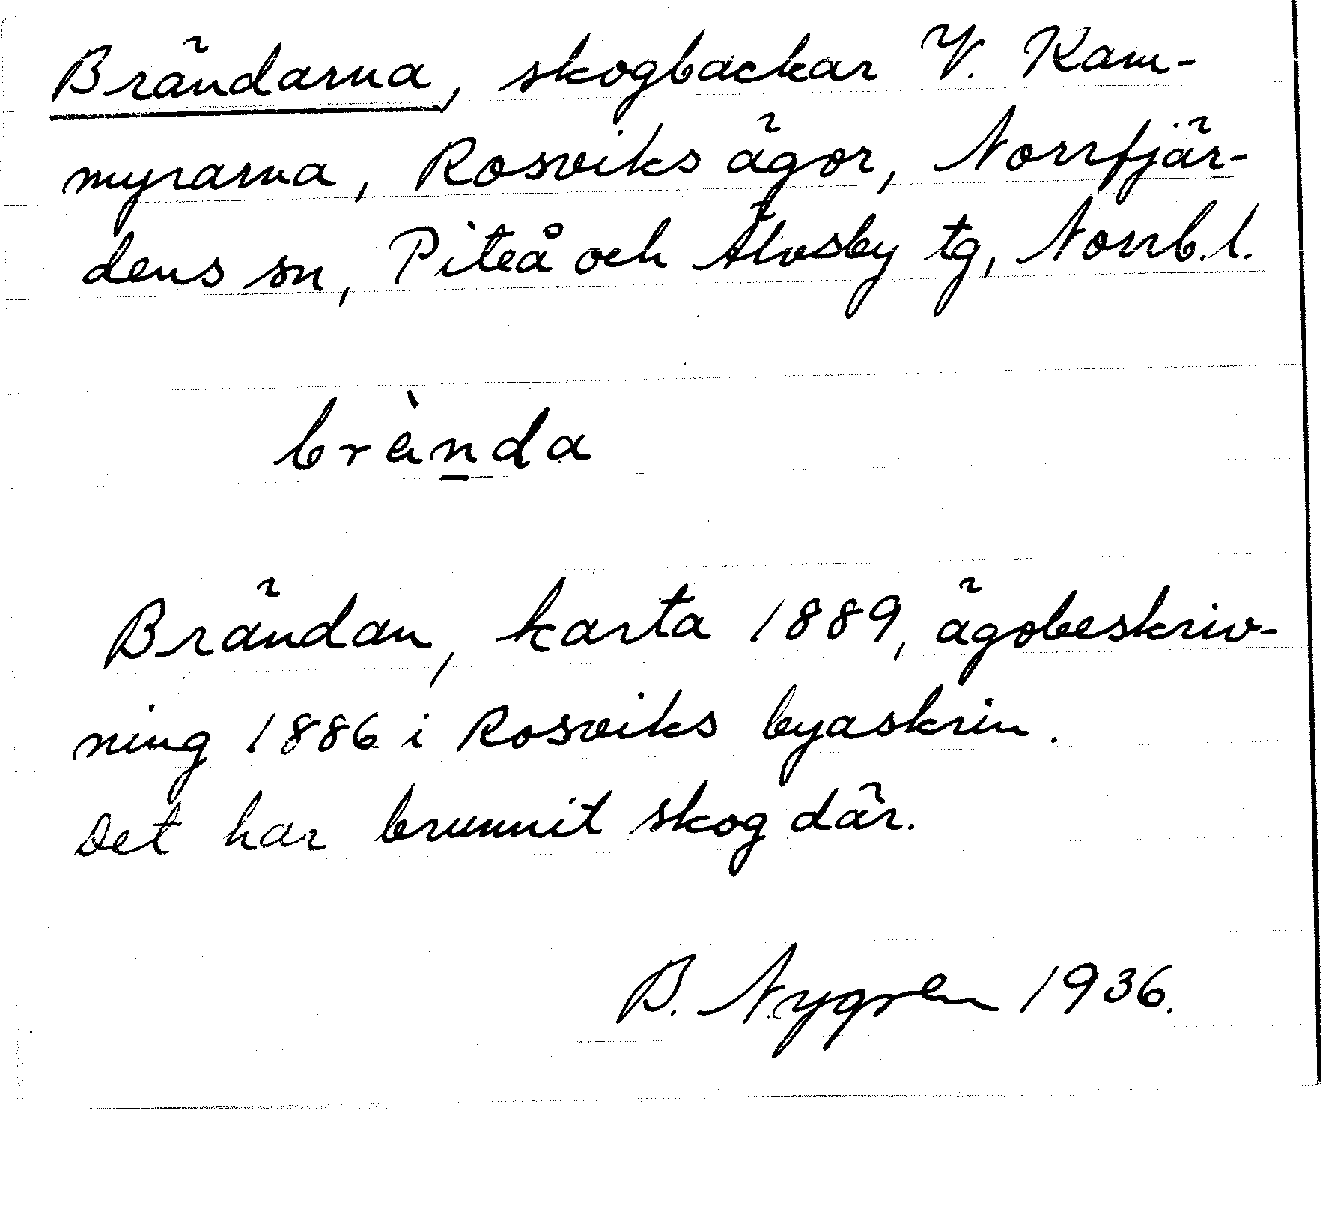 Brändarna, skogbackar V. Kam-
myrarna, Rosviks ägor, Norrfjär-
dens sn, Piteå och Älvsby tg, Norrb. l.
brànda
Brändan, karta 1889, ägobeskriv-
ning 1886 i Rosviks byaskrin.
Det har brunnit skog där.
B. Nygren 1936.